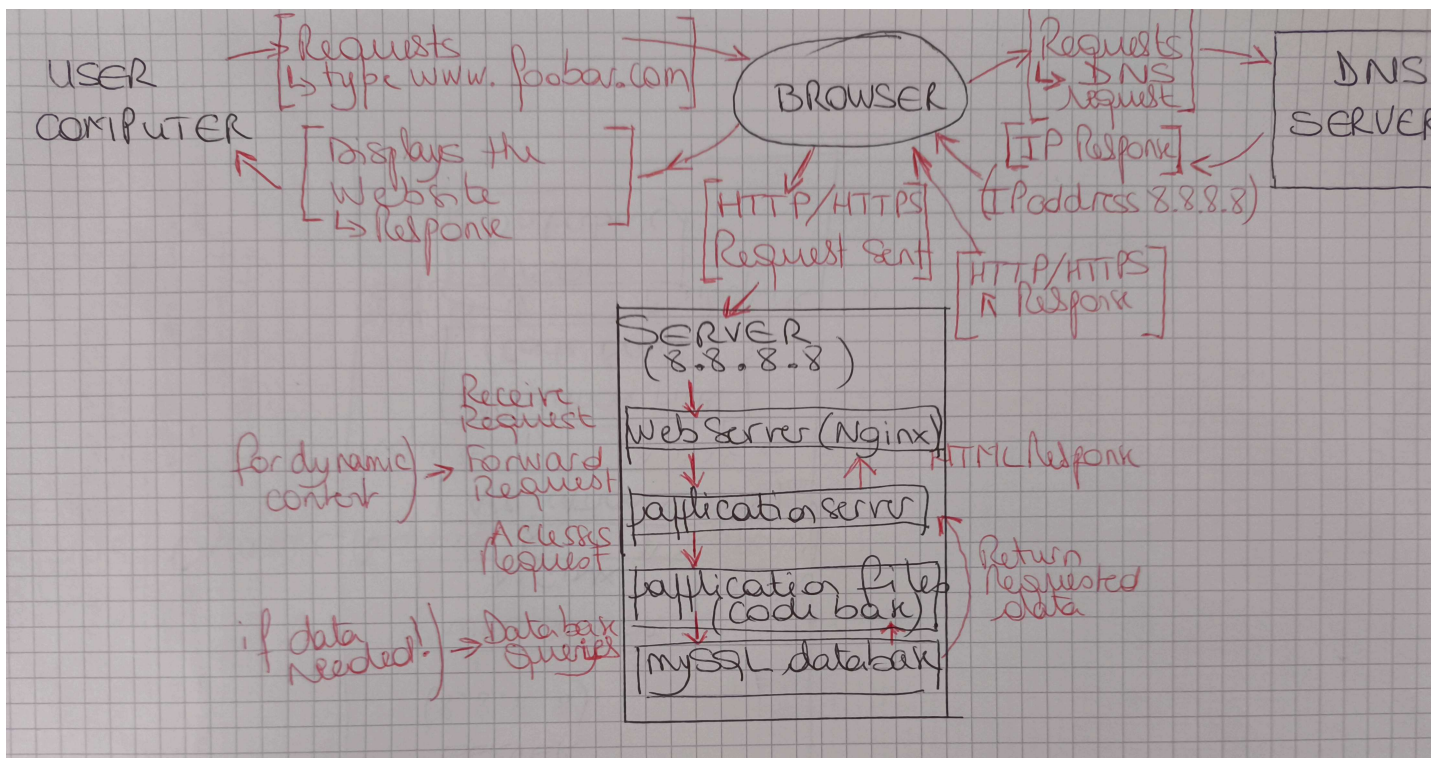 USER
COMPUTER
Requests
↳ type www.foobar.com
BROWSER
Requests
↳ DNS
request
DNS
SERVER
Displays the
Website
↳ Response
[IP Response]
(IP address 8.8.8.8)
HTTP/HTTPS
Request Sent
HTTP/HTTPS
Response
SERVER
(8.8.8.8)
Receive
Request
Web Server (Nginx)
HTML Response
for dynamic
content
Forward
Request
application server
Accesses
request
application files
(code base)
Return
requested
data
if data
needed!
Database
queries
mySQL database